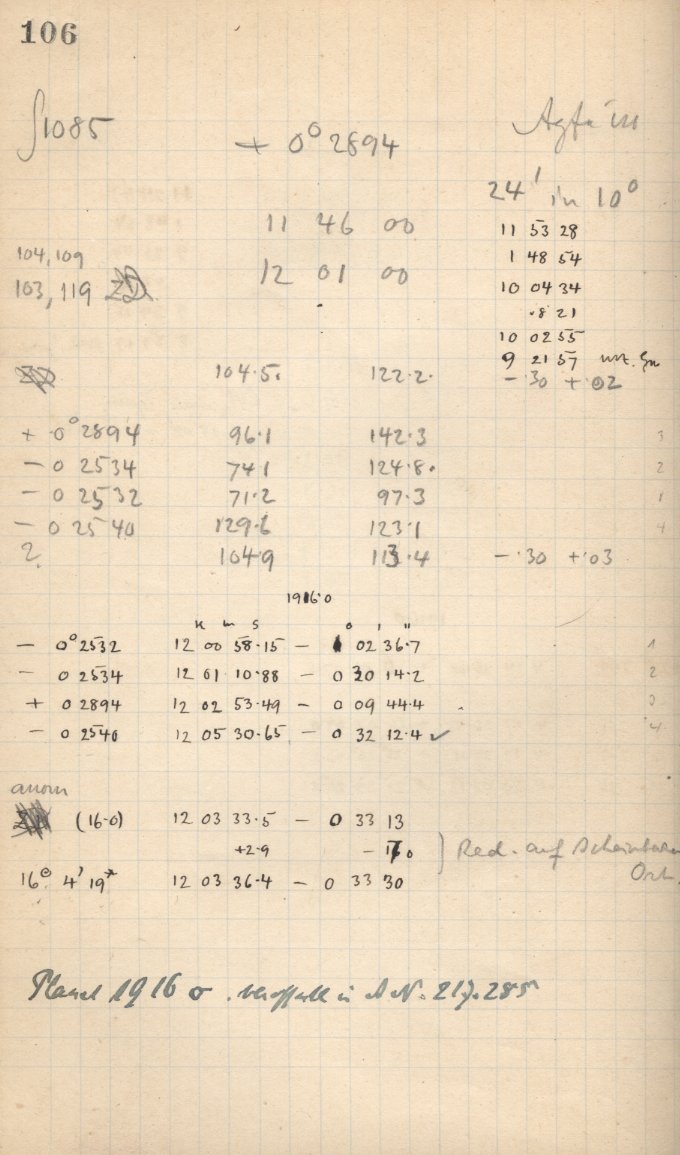 106
∫1085 + 0° 2894 Agfa
24' in 10°
11 46 00 11 53 28
104, 109 1 48 54
103, 119 12 01 00 10 04 34
·8 21
10 02 55
9 21 57
104·5 122·2 - ·30 + ·02
+ 0° 2894 96·1 142·3 3
- 0 2534 74·1 124·8 2
- 0 2532 71·2 97·3 1
- 0 2540 129·6 123·1 4
2. 104·9 113·4 - ·30 + ·03
1916·0
h m s ° ' "
- 0° 2532 12 00 58·15 - 02 36·7 1
- 0 2534 12 01 10·88 - 0 30 14·2 2
+ 0 2894 12 02 53·49 - 0 09 44·4 0
- 0 2540 12 05 30·65 - 0 32 12·4 ✓ 4
anom
(16·0) 12 03 33·5 - 0 33 13
+2·9 } Red. auf Scheinbaren
16° 4' 19* 12 03 36·4 - 0 33 30 Ort
Planet 1916 σ in A.N. 217.285